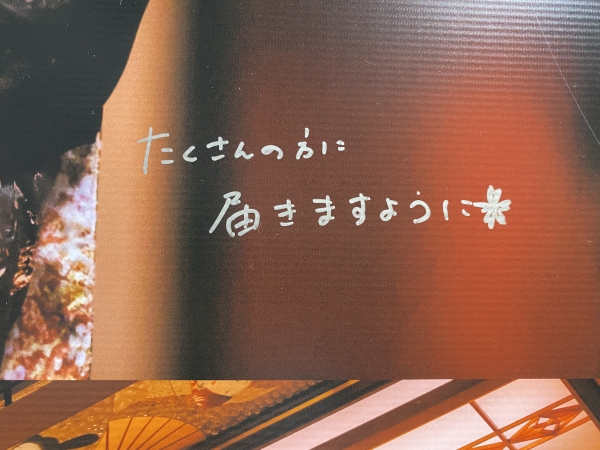 たくさんの方に
届きますように🌸